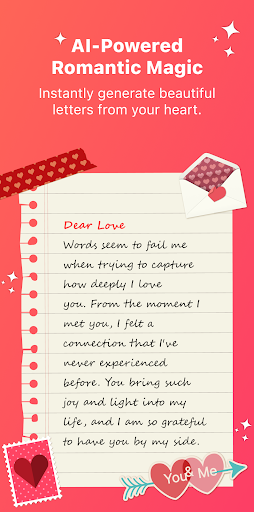 AI-Powered
Romantic Magic
Instantly generate beautiful
letters from your heart.
Dear Love
Words seem to fail me
when trying to capture
how deeply I love
you. From the moment I
met you, I felt a
connection that I've
never experienced
before. You bring such
joy and light into my
life, and I am so grateful
to have you by my side.
You & Me